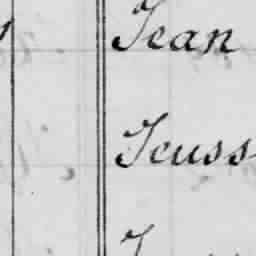 Jean
Jeuss